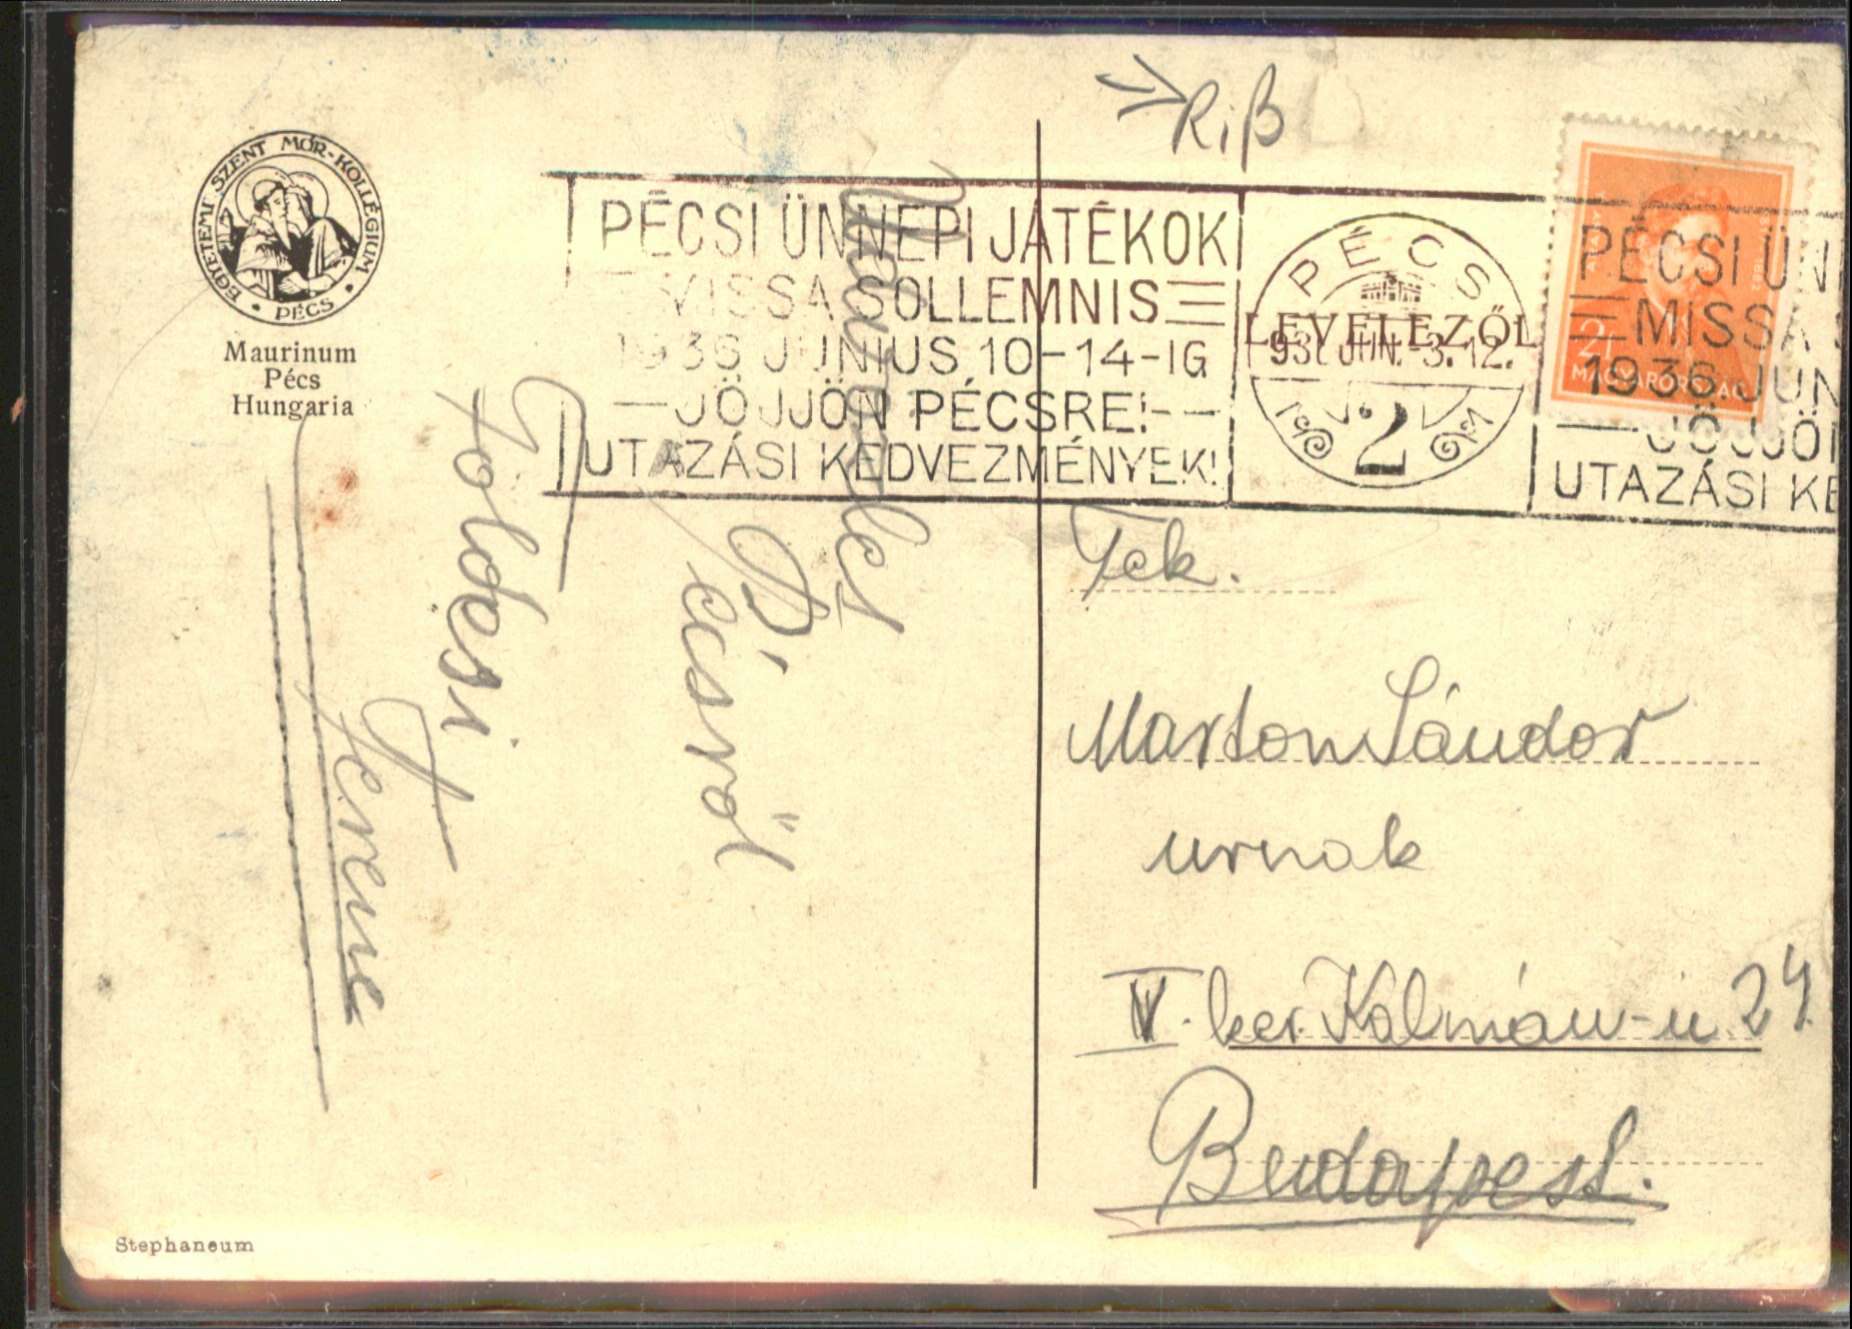 EGYETEMI SZENT MÓR-KOLLÉGIUM
• PÉCS •
Maurinum
Pécs
Hungaria
Riß
PÉCSI ÜNNEPI JÁTÉKOK
MISSA SOLLEMNIS
1936 JUNIUS 10-14-IG
JÖJJÖN PÉCSRE!
UTAZÁSI KEDVEZMÉNYEK!
PÉCS
LEVELEZŐL
936 JUN. -3. 12.
2
MAGYARORSZÁG
2
PÉCSI ÜN
MISSA S
1936 JUN
JÖJJÖ
UTAZÁSI KE
Pécsről
Földesi
Ferenc
Tek.
Marton Sándor
urnak
V. ker. Kálmán-u. 24.
Budapest.
Stephaneum